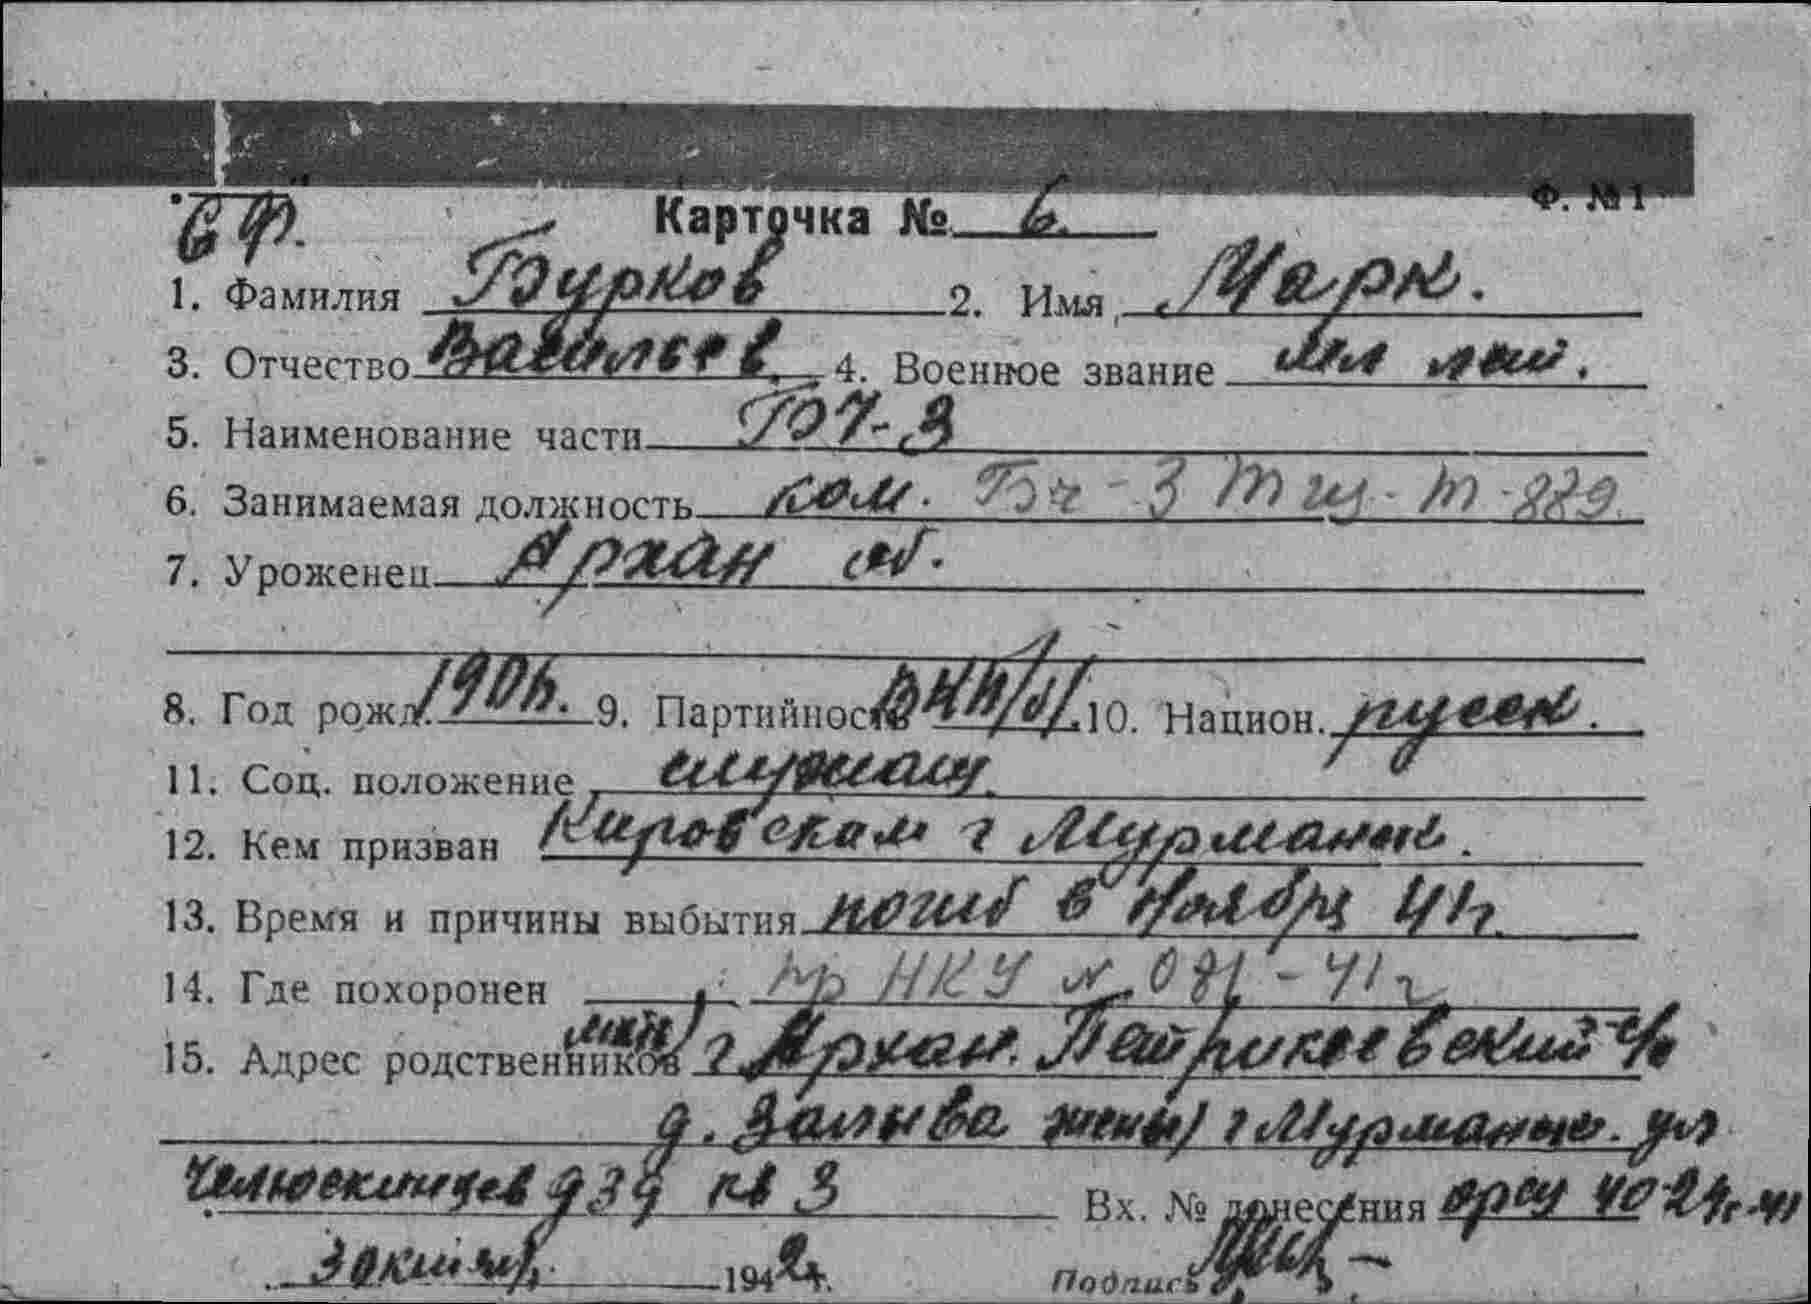 Ф. № 1
СФ. Карточка № 6.
1. Фамилия Бурков 2. Имя Марк.
3. Отчество Васильев. 4. Военное звание мл лей.
5. Наименование части БЧ-3
6. Занимаемая должность ком. Бч-3 Тщ-Т-889.
7. Уроженец Архан об.
8. Год рожд. 1906. 9. Партийность ВКП/б/. 10. Национ. русск.
11. Соц. положение служащ.
12. Кем призван Кировским г Мурманск.
13. Время и причины выбытия погиб в Ноябре 41г.
14. Где похоронен пр НКУ № 081-41г
15. Адрес родственников г Архан. Петрикеевский с/с
д. жены) г Мурманск. ул
Челюскинцев д 39 кв 3 Вх. № донесения 4024с-41
3 октяб. 1942г.
Подпись